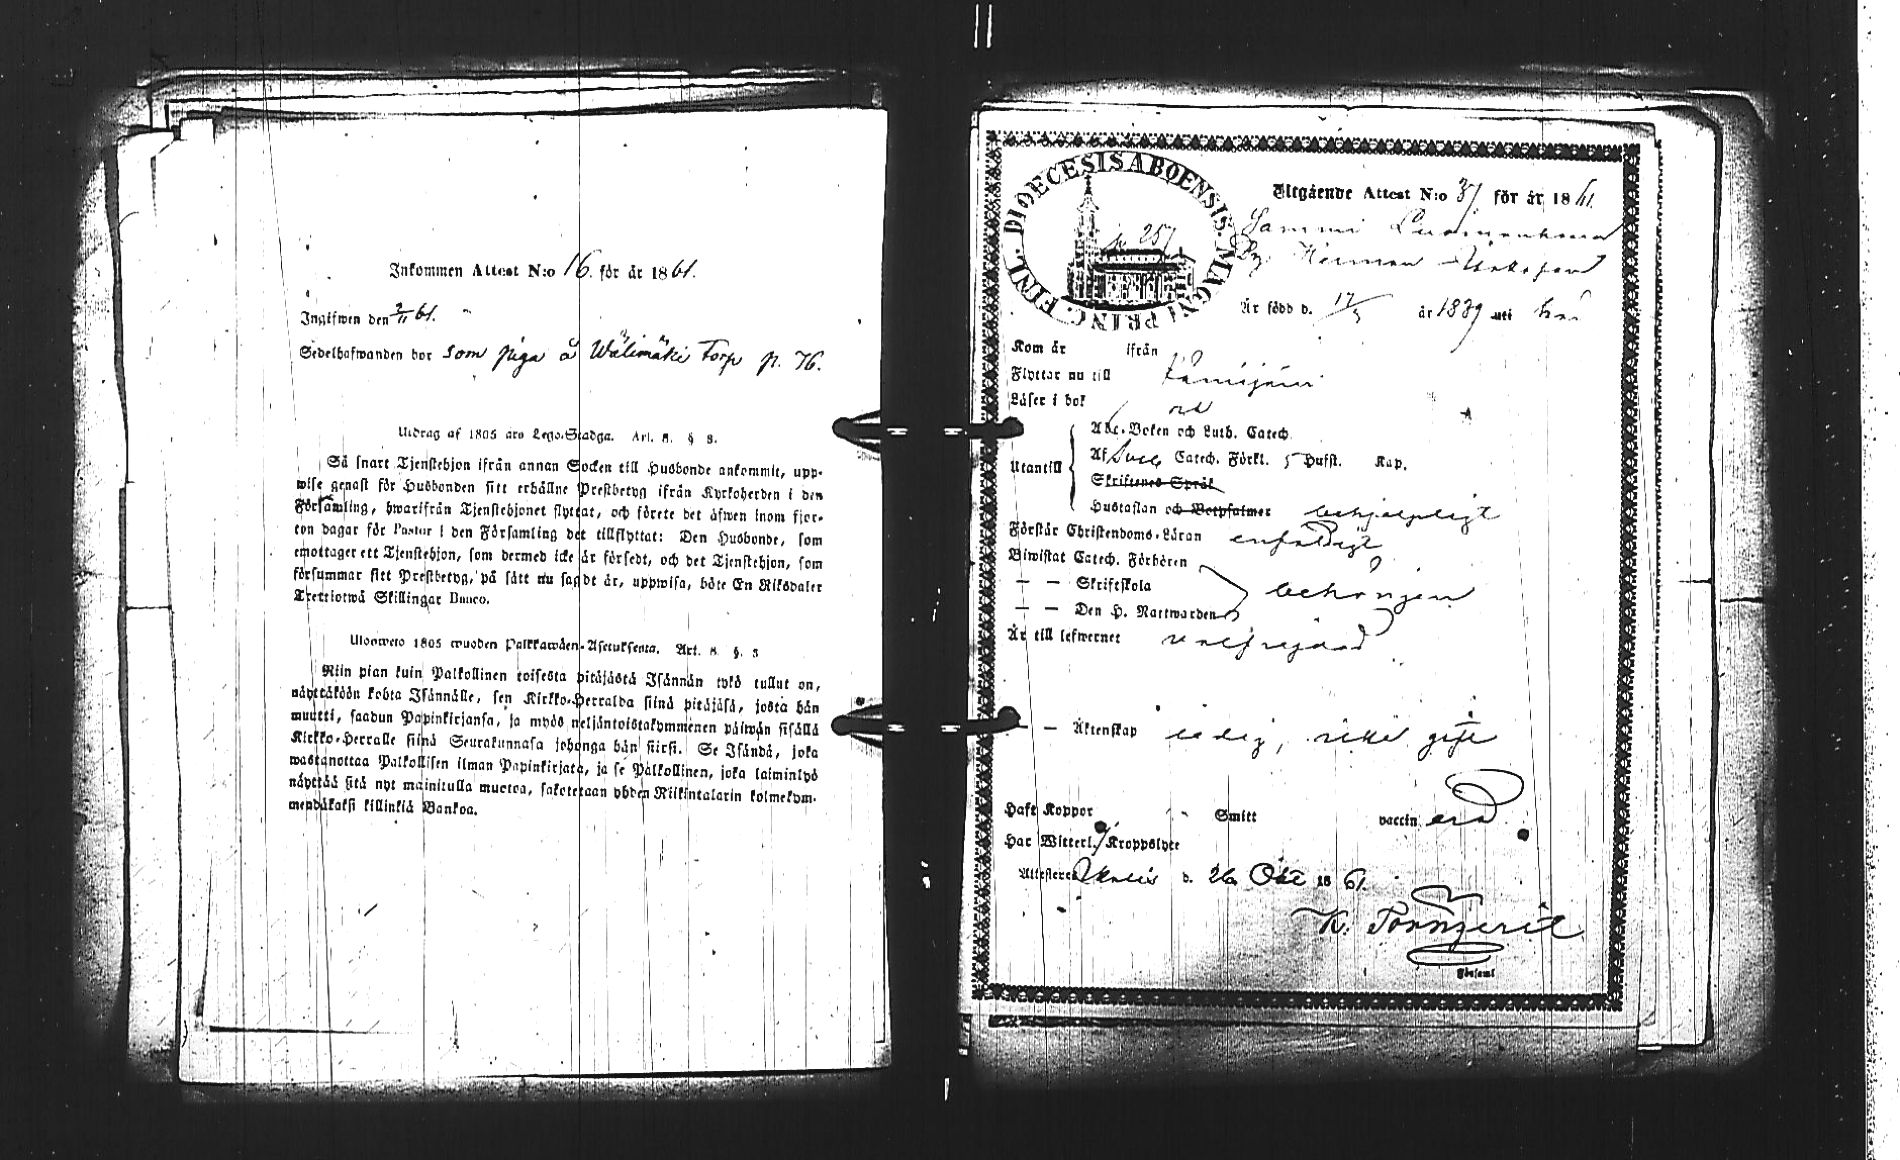 Inkommen Attest N:o 16. för år 1861.
Ingifwen den 2/11 61.
Sedelhafwanden bor som piga å Wälimäki Torp p. 76.
Utdrag af 1805 års Lego-Stadga. Art. 8. § 8.
Så snart Tjenstehjon ifrån annan Socken till Husbonde ankommit, upp-
wise genast för Husbonden sitt erhållne Prestbetyg ifrån Kyrkoherden i den
Församling, hwarifrån Tjenstehjonet flyttat, och förete det äfwen inom fjor-
ton dagar för Pastor i den Församling det tillflyttat: Den Husbonde, som
emottager ett Tjenstehjon, som dermed icke är försedt, och det Tjenstehjon, som
försummar sitt Prestbetyg, på sätt nu sagdt är, uppwisa, böte En Riksdaler
Trettiotwå Skillingar Banco.
Ulosweto 1805 wuoden Palkkawäen-Asetuksesta. Art. 8 §. 8
Niin pian kuin Palkollinen toisesta pitäjästä Isännän tykö tullut on,
näyttäköön kohta Isännälle, sen Kirkko-Herralda siinä pitäjäsä, josta hän
muutti, saadun Papinkirjansa, ja myös neljäntoistakymmenen päiwän sisällä
Kirkko-Herralle siinä Seurakunnasa johonga hän siirsi. Se Isändä, joka
wastanottaa Palkollisen ilman Papinkirjata, ja se Palkollinen, joka laiminlyö
näyttää sitä nyt mainitulla muotoa, sakotetaan yhden Riikintalarin kolmekym-
mendäkaksi killinkiä Bankoa.
DIOECESIS ABOENSIS. MAGNI PRINC. FINL.
p. 257
Utgående Attest N:o 31 för år 1861.
Är född d. 17/5 år 1839 uti
Kom år ifrån
Flyttar nu till Kämijärvi
Läser i bok
Abc-Boken och Luth. Catech.
Utantill Af Catech. Förkl. 5 Hufst. Kap.
Skriftenes Språk
Hustaflan och Botpsalmer behjelpligt
Förstår Christendoms-Läran enfaldigt
Biwistat Catech. Förhören
— — Skriftskola behörigen
— — Den H. Nattwarden
Är till lefwernet välfrejdad
— — Äktenskap ledig, icke gift
Haft Koppor Smitt vaccin erad
Har Witterl. Kroppslyte
Attesterar d. 26 Okt 1861.